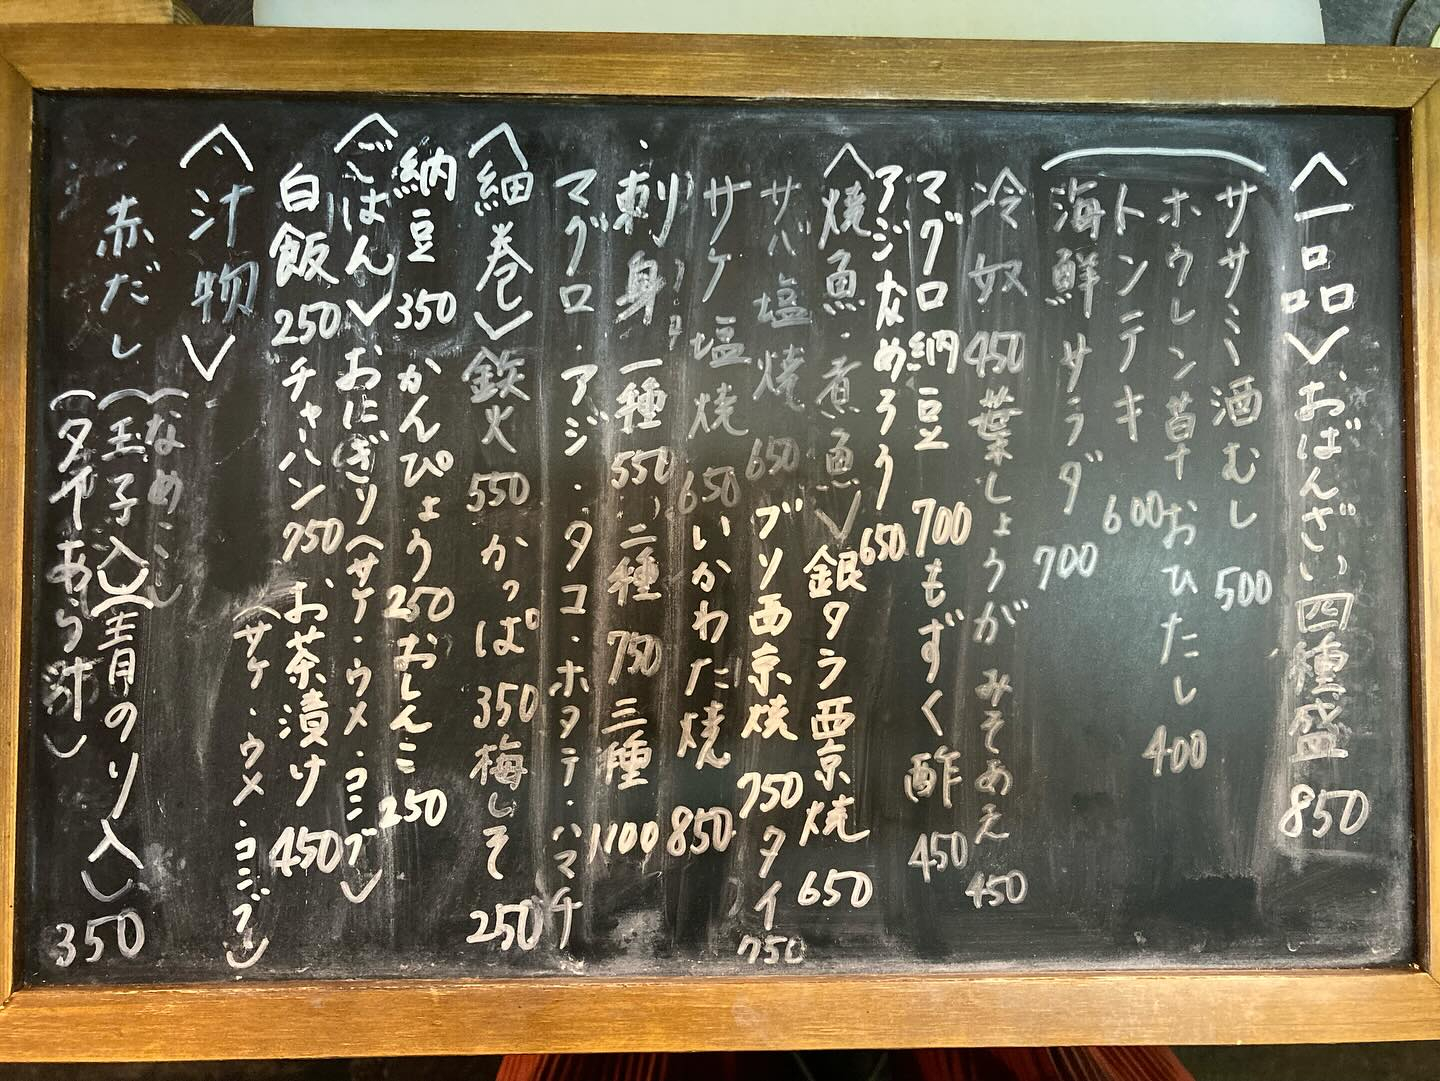 〈一品〉おばんざい四種盛 850
ササミ酒むし 500
ホウレン草おひたし 400
トンテキ 600
海鮮サラダ 700
冷奴 450 葉しょうがみそあえ 450
マグロ納豆 700 もずく酢 450
アジなめろう 650
〈焼魚・煮魚〉銀タラ西京焼 650
サバ塩焼 650 ブリ西京焼 750 タイ 750
サケ塩焼 650 いかわた焼 850
刺身 一種 550 二種 750 三種 1100
マグロ・アジ・タコ・ホタテ・ハマチ
〈細巻〉鉄火 550 かっぱ 350 梅しそ 250
納豆 350 かんぴょう 250 おしんこ 250
〈ごはん〉おにぎり(サケ・ウメ・コンブ)
白飯 250 チャーハン 750 お茶漬け 450
(サケ・ウメ・コンブ)
〈汁物〉
(なめこ)
赤だし (玉子入)(青のり入) 350
(タイあら汁)